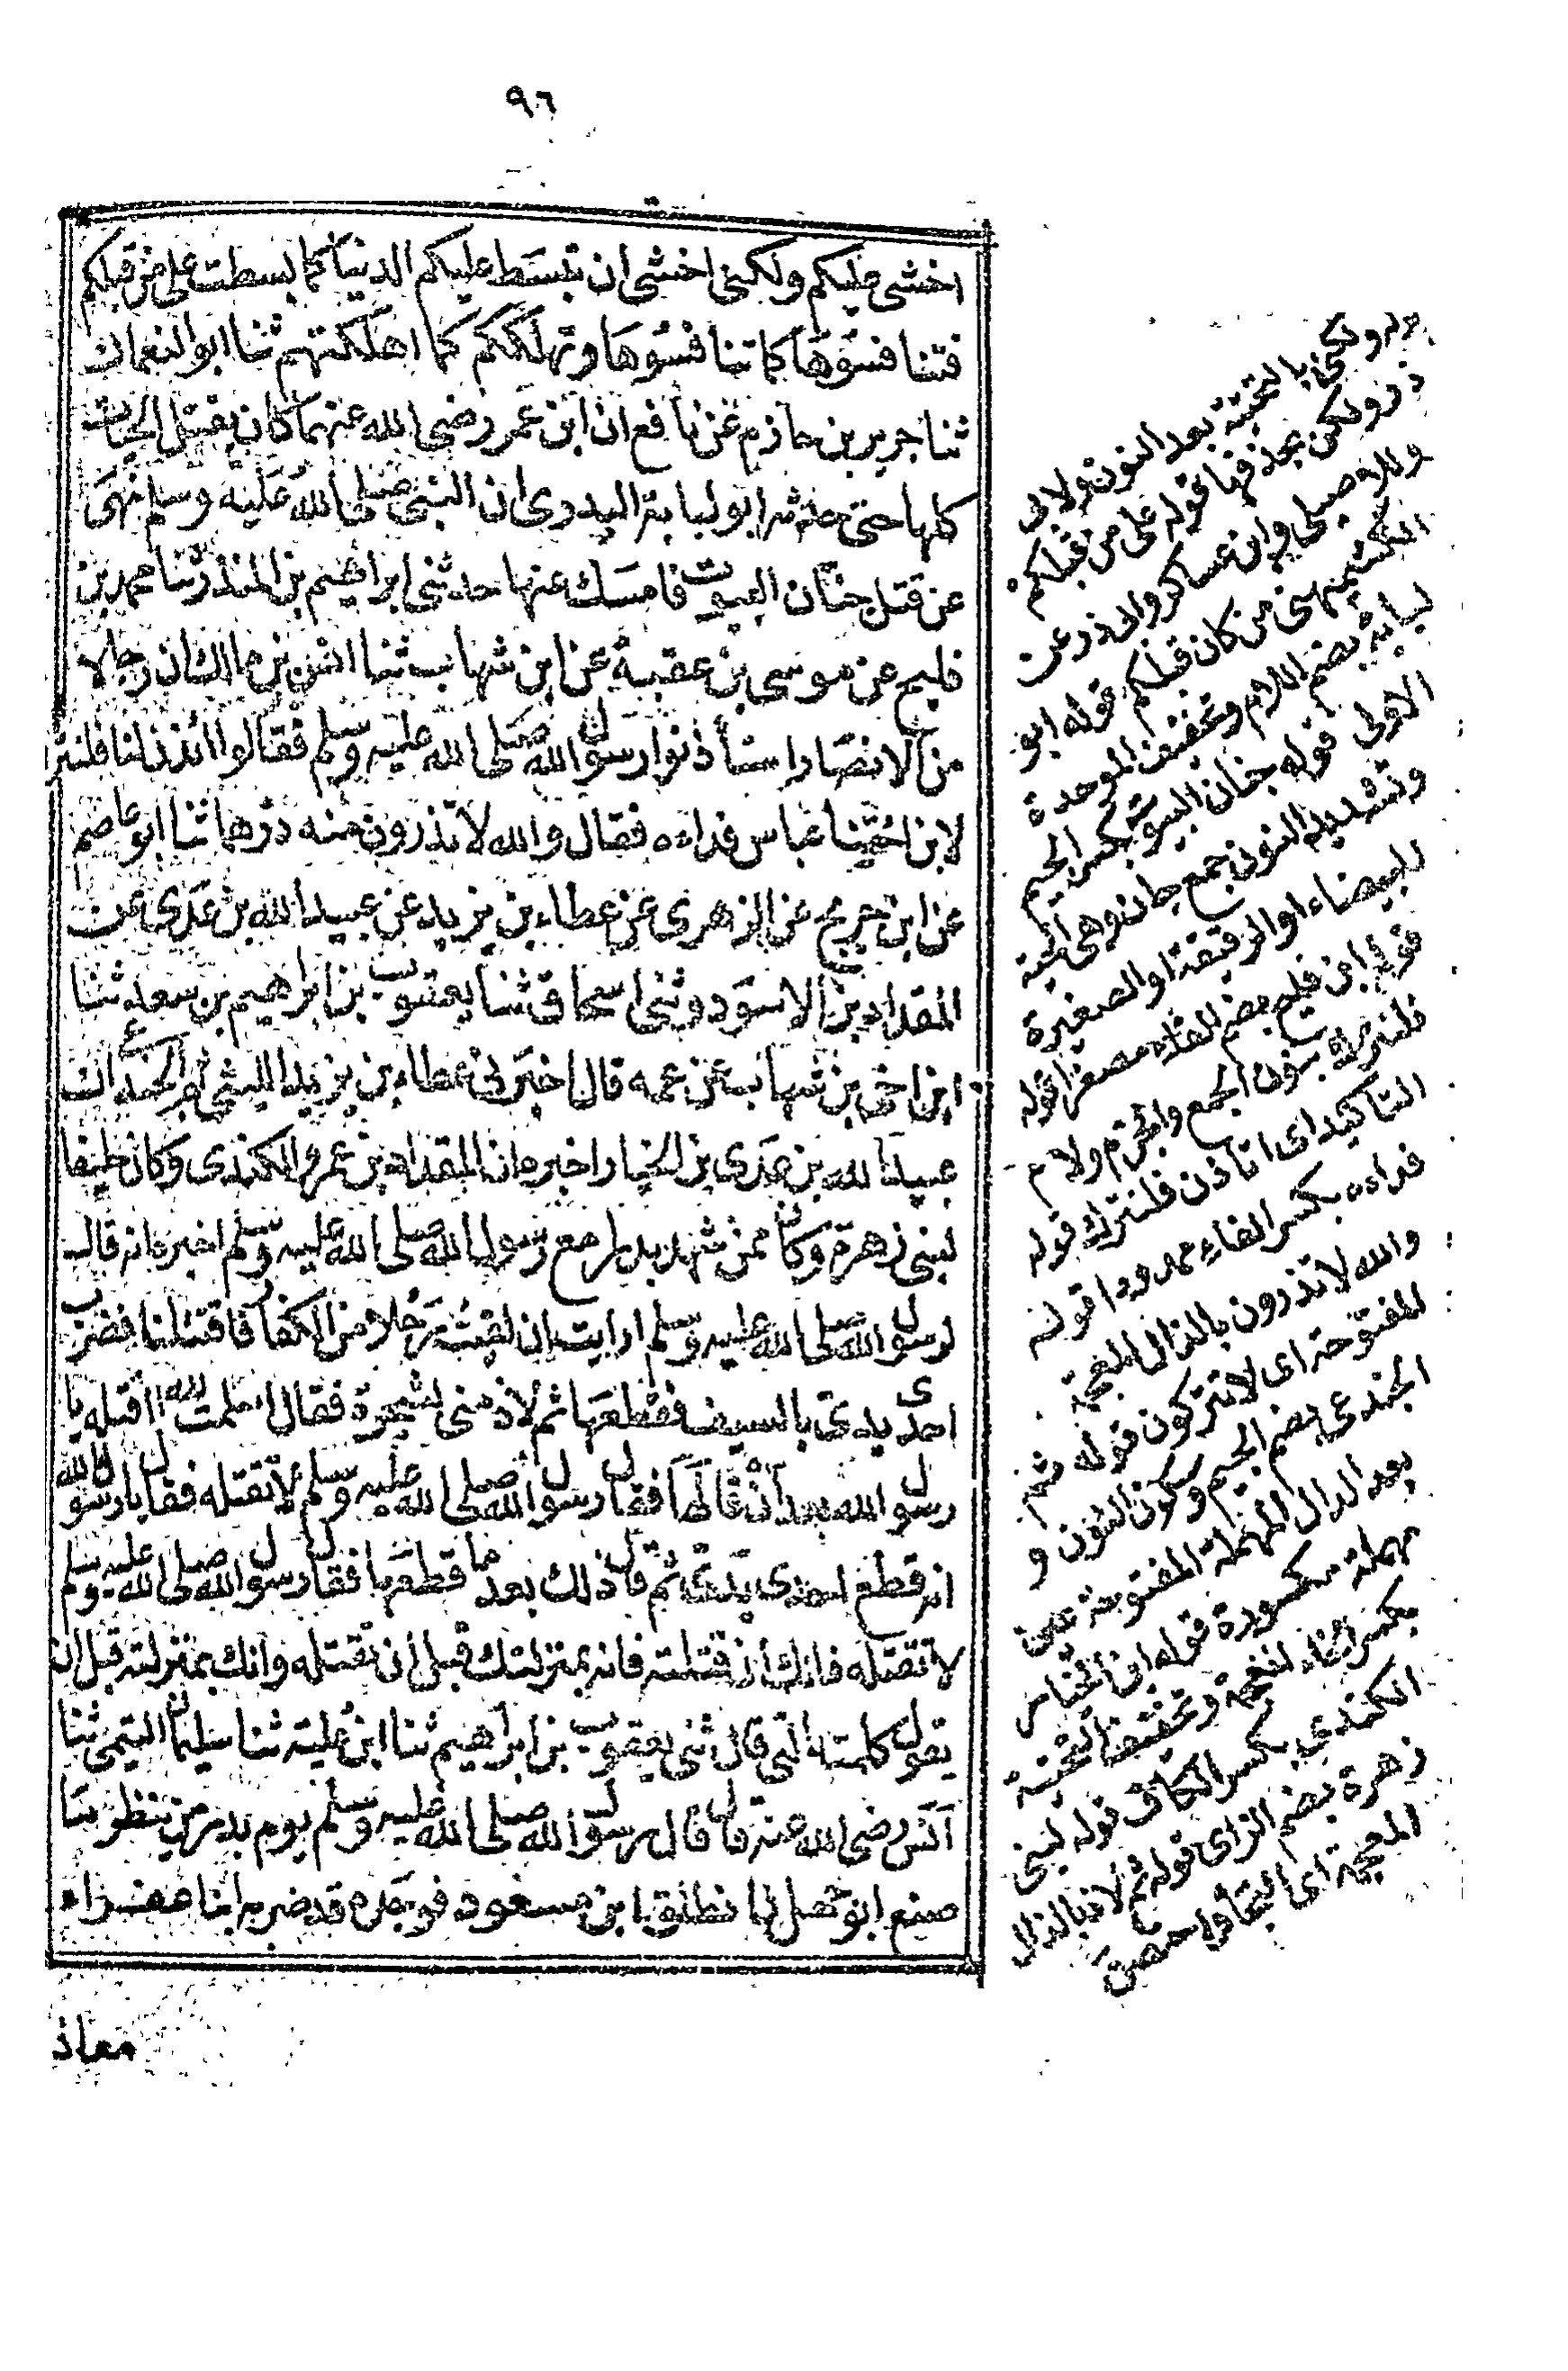 ٩٦
اخشى عليكم ولكنى اخشى ان تبسط عليكم الدنيا كما بسطت على من قبلكم
فتنافسوها كما تنافسوها وتهلككم كما اهلكتهم ثنا ابو النعمان
ثنا جرير بن حازم عن نافع ان ابن عمر رضى الله عنهما كان يقتل الحيات
كلها حتى حدثه ابو لبابة البدرى ان النبى صلى الله عليه وسلم نهى
عن قتل جنان البيوت فامسك عنها حدثنى ابراهيم بن المنذر ثنا محمد بن
فليح عن موسى بن عقبة عن ابن شهاب ثنا انس بن مالك ان رجالا
من الانصار استأذنوا رسول الله صلى الله عليه وسلم فقالوا ائذن لنا فلنترك
لابن اختنا عباس فداءه فقال والله لا تذرون منه درهما ثنا ابو عاصم
عن ابن جريج عن الزهرى عن عطاء بن يزيد عن عبيد الله بن عدى عن
المقداد بن الاسود وثنى اسحاق ثنا يعقوب بن ابراهيم بن سعد ثنا
ابن اخى بن شهاب عن عمه قال اخبرنى عطاء بن يزيد الليثى ثم الجندعى ان
عبيد الله بن عدى بن الخيار اخبره ان المقداد بن عمرو الكندى وكان حليفا
لبنى زهرة وكان ممن شهد بدرا مع رسول الله صلى الله عليه وسلم اخبره انه قال
لرسول الله صلى الله عليه وسلم ارايت ان لقيت رجلا من الكفار فاقتتلنا فضرب
احدى يدى بالسيف فقطعها ثم لاذ منى بشجرة فقال اسلمت لله أاقتله يا
رسول الله بعد أن قالها فقال رسول الله صلى الله عليه وسلم لا تقتله فقال يا رسول الله
انه قطع احدى يدى ثم قال ذلك بعد ما قطعها فقال رسول الله صلى الله عليه وسلم
لا تقتله فانك ان قتلته فانه بمنزلتك قبل أن تقتله وانك بمنزلته قبل ان
يقول كلمته التى قال ثنى يعقوب بن ابراهيم ثنا ابن علية ثنا سليمان التيمى ثنا
انس رضى الله عنه قال قال رسول الله صلى الله عليه وسلم يوم بدر من ينظر ما
صنع ابو جهل فانطلق ابن مسعود فوجده قد ضربه ابنا عفراء
معاذ
ولكنى بالتحتية بعد النون ولابى
ذر ولكن بحذفها قوله على من قبلكم
وللاصيلى وابن عساكر وابى ذر عن
الكشميهنى من كان قبلكم قوله ابو
لبابة بضم اللام وتخفيف الموحدة
الاولى قوله جنان البيوت بكسر الجيم
وتشديد النون جمع جان وهى الحية
البيضاء او الرقيقة او الصغيرة
قوله ابن فليح بضم الفاء مصغرا قوله
فلنترك بنون الجمع والجزم ولام
التاكيد اى اتاذن فلنترك قوله
فداءه بكسر الفاء ممدودا قوله
والله لا تذرون بالذال المعجمة
المفتوحة اى لا تتركون قوله ثم
الجندعى بضم الجيم وسكون النون و
بعد الدال المهملة المفتوحة عين
مهملة مكسورة قوله ابن الخيار
بكسر الخاء المعجمة وتخفيف التحتية
الكندى بكسر الكاف قوله لبنى
زهرة بضم الزاى قوله ثم لاذ بالذال
المعجمة اى التجأ